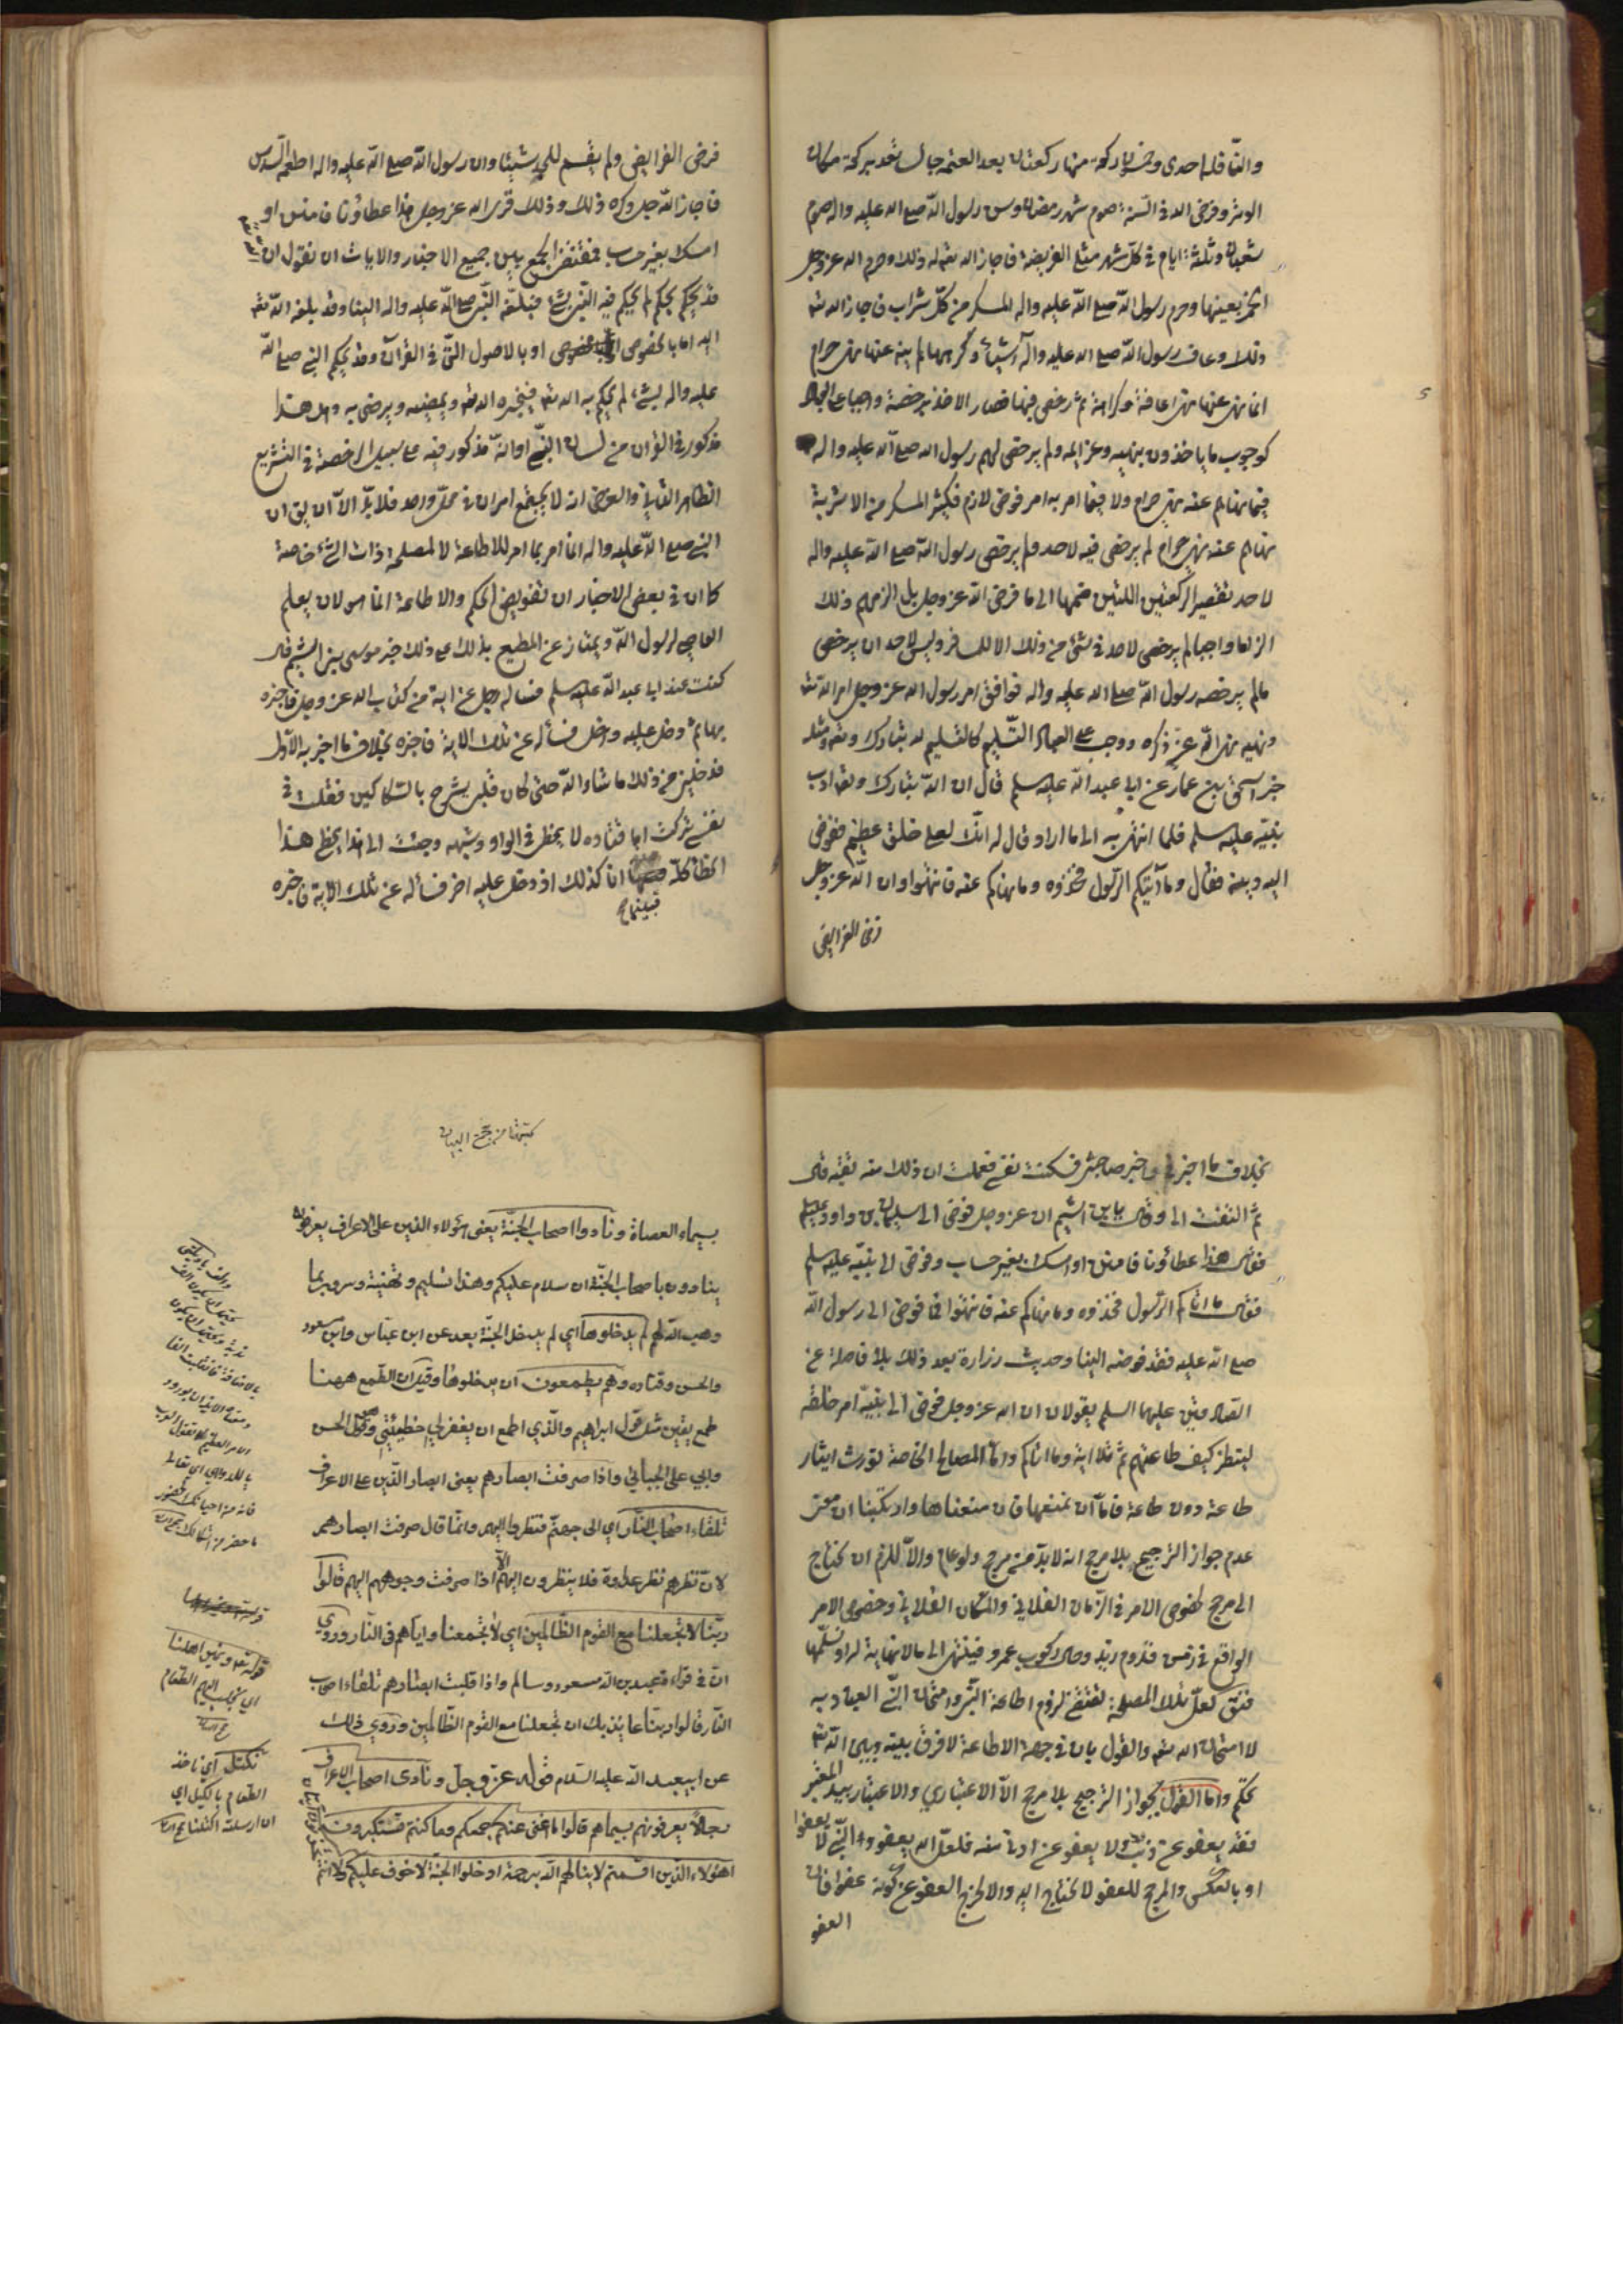 والنافلة احدى وخمسون ركعة منها ركعتان بعد العتمة جالسا تعد بركعة مكان
الوتر وفرض الله في السنة صوم شهر رمضان وسن رسول الله صلع الله عليه واله صوم
شعبان وثلثة ايام في كل شهر مثلي الفريضة فاجاز الله تعه له ذلك وحرم الله عز وجل
الخمر بعينها وحرم رسول الله صلع الله عليه واله المسكر من كل شراب فاجاز الله تعه
ذلك وعاف رسول الله صلع الله عليه واله اشياء وكرهها لم ينه عنها نهى حرام
انما نهى عنها نهى اعافة وكراهة ثم رخص فيها فصار الاخذ برخصة واجبا على العباد
كوجوب ما ياخذون بنهيه وعزائمه ولم يرخص لهم رسول الله صلع الله عليه واله
فيما نهاهم عنه نهى حرام ولا فيما امر به امر فرض لازم فكثير المسكر من الاشربة
نهاهم عنه نهى حرام لم يرخص فيه لاحد ولم يرخص رسول الله صلع الله عليه واله
لاحد تقصير الركعتين اللتين ضمها الى ما فرض الله عز وجل بل الزمهم ذلك
الزاما واجبا لم يرخص لاحد في شئ من ذلك الا للمسافر وليس لاحد ان يرخص
ما لم يرخصه رسول الله صلع الله عليه واله فوافق امر رسول الله عز وجل امر الله تعه
ونهيه نهى الله عز ذكره ووجب على العباد التسليم كالتسليم لله تبارك وتعه ومثله
خبر اسحق بن عمار عن ابي عبد الله عليه سلم قال ان الله تبارك وتعه ادب
نبيه عليه سلم فلما انتهى به الى ما اراد قال له انك لعلى خلق عظيم ففوض
اليه دينه فقال وما آتيكم الرسول فخذوه وما نهاكم عنه فانتهوا وان الله عز وجل
فرض الفرايض
فرض الفرايض ولم يقسم للجد شيئا وان رسول الله صلع الله عليه واله اطعمه السدس
فاجاز الله جل ذكره ذلك وذلك قول الله عز وجل هذا عطاؤنا فامنن او
امسك بغير حساب فمقتضى الجمع بين جميع الاخبار والايات ان نقول ان
قد يحكم بحكم لم يحكم فيه النبي بشئ فبلغه النبي صلع الله عليه واله الينا وقد بلغه الله تعه
اليه اما بالخصوص او بالاصول التي في القرآن وقد يحكم النبي صلع الله
عليه واله بشئ لم يحكم به الله تعه فيخبره الله تعه ويمضيه ويرضى به وهل هذا
مذكور في القرآن من لسان النبي او انه مذكور فيه على سبيل الرخصة في التشريع
الظاهر الثاني والغرض انه لا يجتمع امران في محل واحد فلا بد الا ان يق ان
النبي صلع الله عليه واله انما امر بما امر للاطاعة لا لمصلحة ذات الشئ خاصة
كما ان في بعض الاخبار ان تفويض الحكم والاطاعة انما هو لان يعلم
العاصي لرسول الله ويمتاز عن المطيع بذلك من ذلك خبر موسى بن اشيم قال
كنت عند ابي عبد الله عليه سلم فساله رجل عن اية من كتاب الله عز وجل فاخبره
بها ثم دخل عليه داخل فسأله عن تلك الاية فاخبره بخلاف ما اخبر به الاول
فدخلني من ذلك ما شاء الله حتى كان قلبي يشرح بالسكاكين فقلت في
نفسي تركت ابا قتاده لا يخطئ في الواو وشبهه وجئت الى هذا يخطئ هذا
الخطا كله انا كذلك اذ دخل عليه اخر فسأله عن تلك الاية فاخبره
فبينما
بخلاف ما اخبرني واخبر صاحبي فسكنت نفسي فعلمت ان ذلك منه تقية قال
ثم التفت الي وقال يا بن اشيم ان عز وجل فوض الى سليمان بن داود عليه سلم
فقال هذا عطاؤنا فامنن او امسك بغير حساب وفوض الى نبيه عليه سلم
فقال ما اتاكم الرسول فخذوه وما نهاكم عنه فانتهوا فما فوض الى رسول الله
صلع الله عليه فقد فوضه الينا وحديث زرارة بعد ذلك بلا فاصلة عن
الصادقين عليهما السلم يقولان ان الله عز وجل فوض الى نبيه امر خلقه
لينظر كيف طاعتهم ثم تلا اية وما اتاكم واما المصالح الخاصة لو رث ايثار
طاعة دون طاعة فاما ان نمنعها فان منعناها
عدم جواز الترجيح بلا مرجح انه لا بد من مرجح ولو عام والا للزم ان نحتاج
الى مرجح لخصوص الامر في الزمان الفلاني والمكان الفلاني وخصوص الامر
الواقع في زمن قدوم زيد وحال ركوب عمرو فينتهي الى ما لا نهاية له او نسلمها
فنق لعل تلك المصلحة تقتضي لزوم اطاعة النبي وامتحان النبي العباد به
لا امتحان الله تعه والقول بان في جهة الاطاعة لا فرق بينه وبين الله تعه
تحكم واما القول بجواز الترجيح بلا مرجح الا الاعتباري والاعتبار بيد المعتبر
فقد يعفو عن ذنب ولا يعفو عن ادنى منه فلعل الله يعفو والنبي لا يعفو
او بالعكس والمرجح للعفو لا نحتاج اليه والا لخرج العفو عن كونه عفوا فان
العفو
كتبتها من مجمع البيان
بسيماء العصاة ونادوا اصحاب الجنة يعني هؤلاء الذين على الاعراف يعرفون
ينادون باصحاب الجنة ان سلام عليكم وهذا تسليم وتهنية وسرور بما
وهب الله لهم لم يدخلوها اي لم يدخل الجنة بعد عن ابن عباس وابن مسعود
والحسن وقتاده وهم يطمعون ان يدخلوها وقيل ان الطمع ههنا
طمع يقين مثل قول ابراهيم والذي اطمع ان يغفر لي خطيئتي وهو قول الحسن
وابي على الجبائي واذا صرفت ابصارهم يعني ابصار الذين على الاعراف
تلقاء اصحاب النار اي الى جهتهم فنظروا اليهم وانما قال صرفت ابصارهم
لان نظرهم نظر عداوة فلا ينظرون اليهم الا اذا صرفت وجوههم اليهم قالوا
ربنا لا تجعلنا مع القوم الظالمين اي لا تجمعنا واياهم في النار وروي
ان في قراءة عبد الله بن مسعود وسالم واذا قلبت ابصارهم تلقاء اصحاب
النار قالوا ربنا عائذ بك ان تجعلنا مع القوم الظالمين وروي ذلك
عن ابيعبد الله عليه السلام قوله عز وجل ونادى اصحاب الاعراف
رجالا يعرفونهم بسيماهم قالوا ما اغنى عنكم جمعكم وما كنتم تستكبرون
اهؤلاء الذين اقسمتم لا ينالهم الله برحمة ادخلوا الجنة لا خوف عليكم ولا انتم
قوله تعه ونمير اهلنا
اي نجلب اليهم الطعام
نكتل اي ناخذ
الطعام بالكيل اي
ان ارسلته اكتلنا